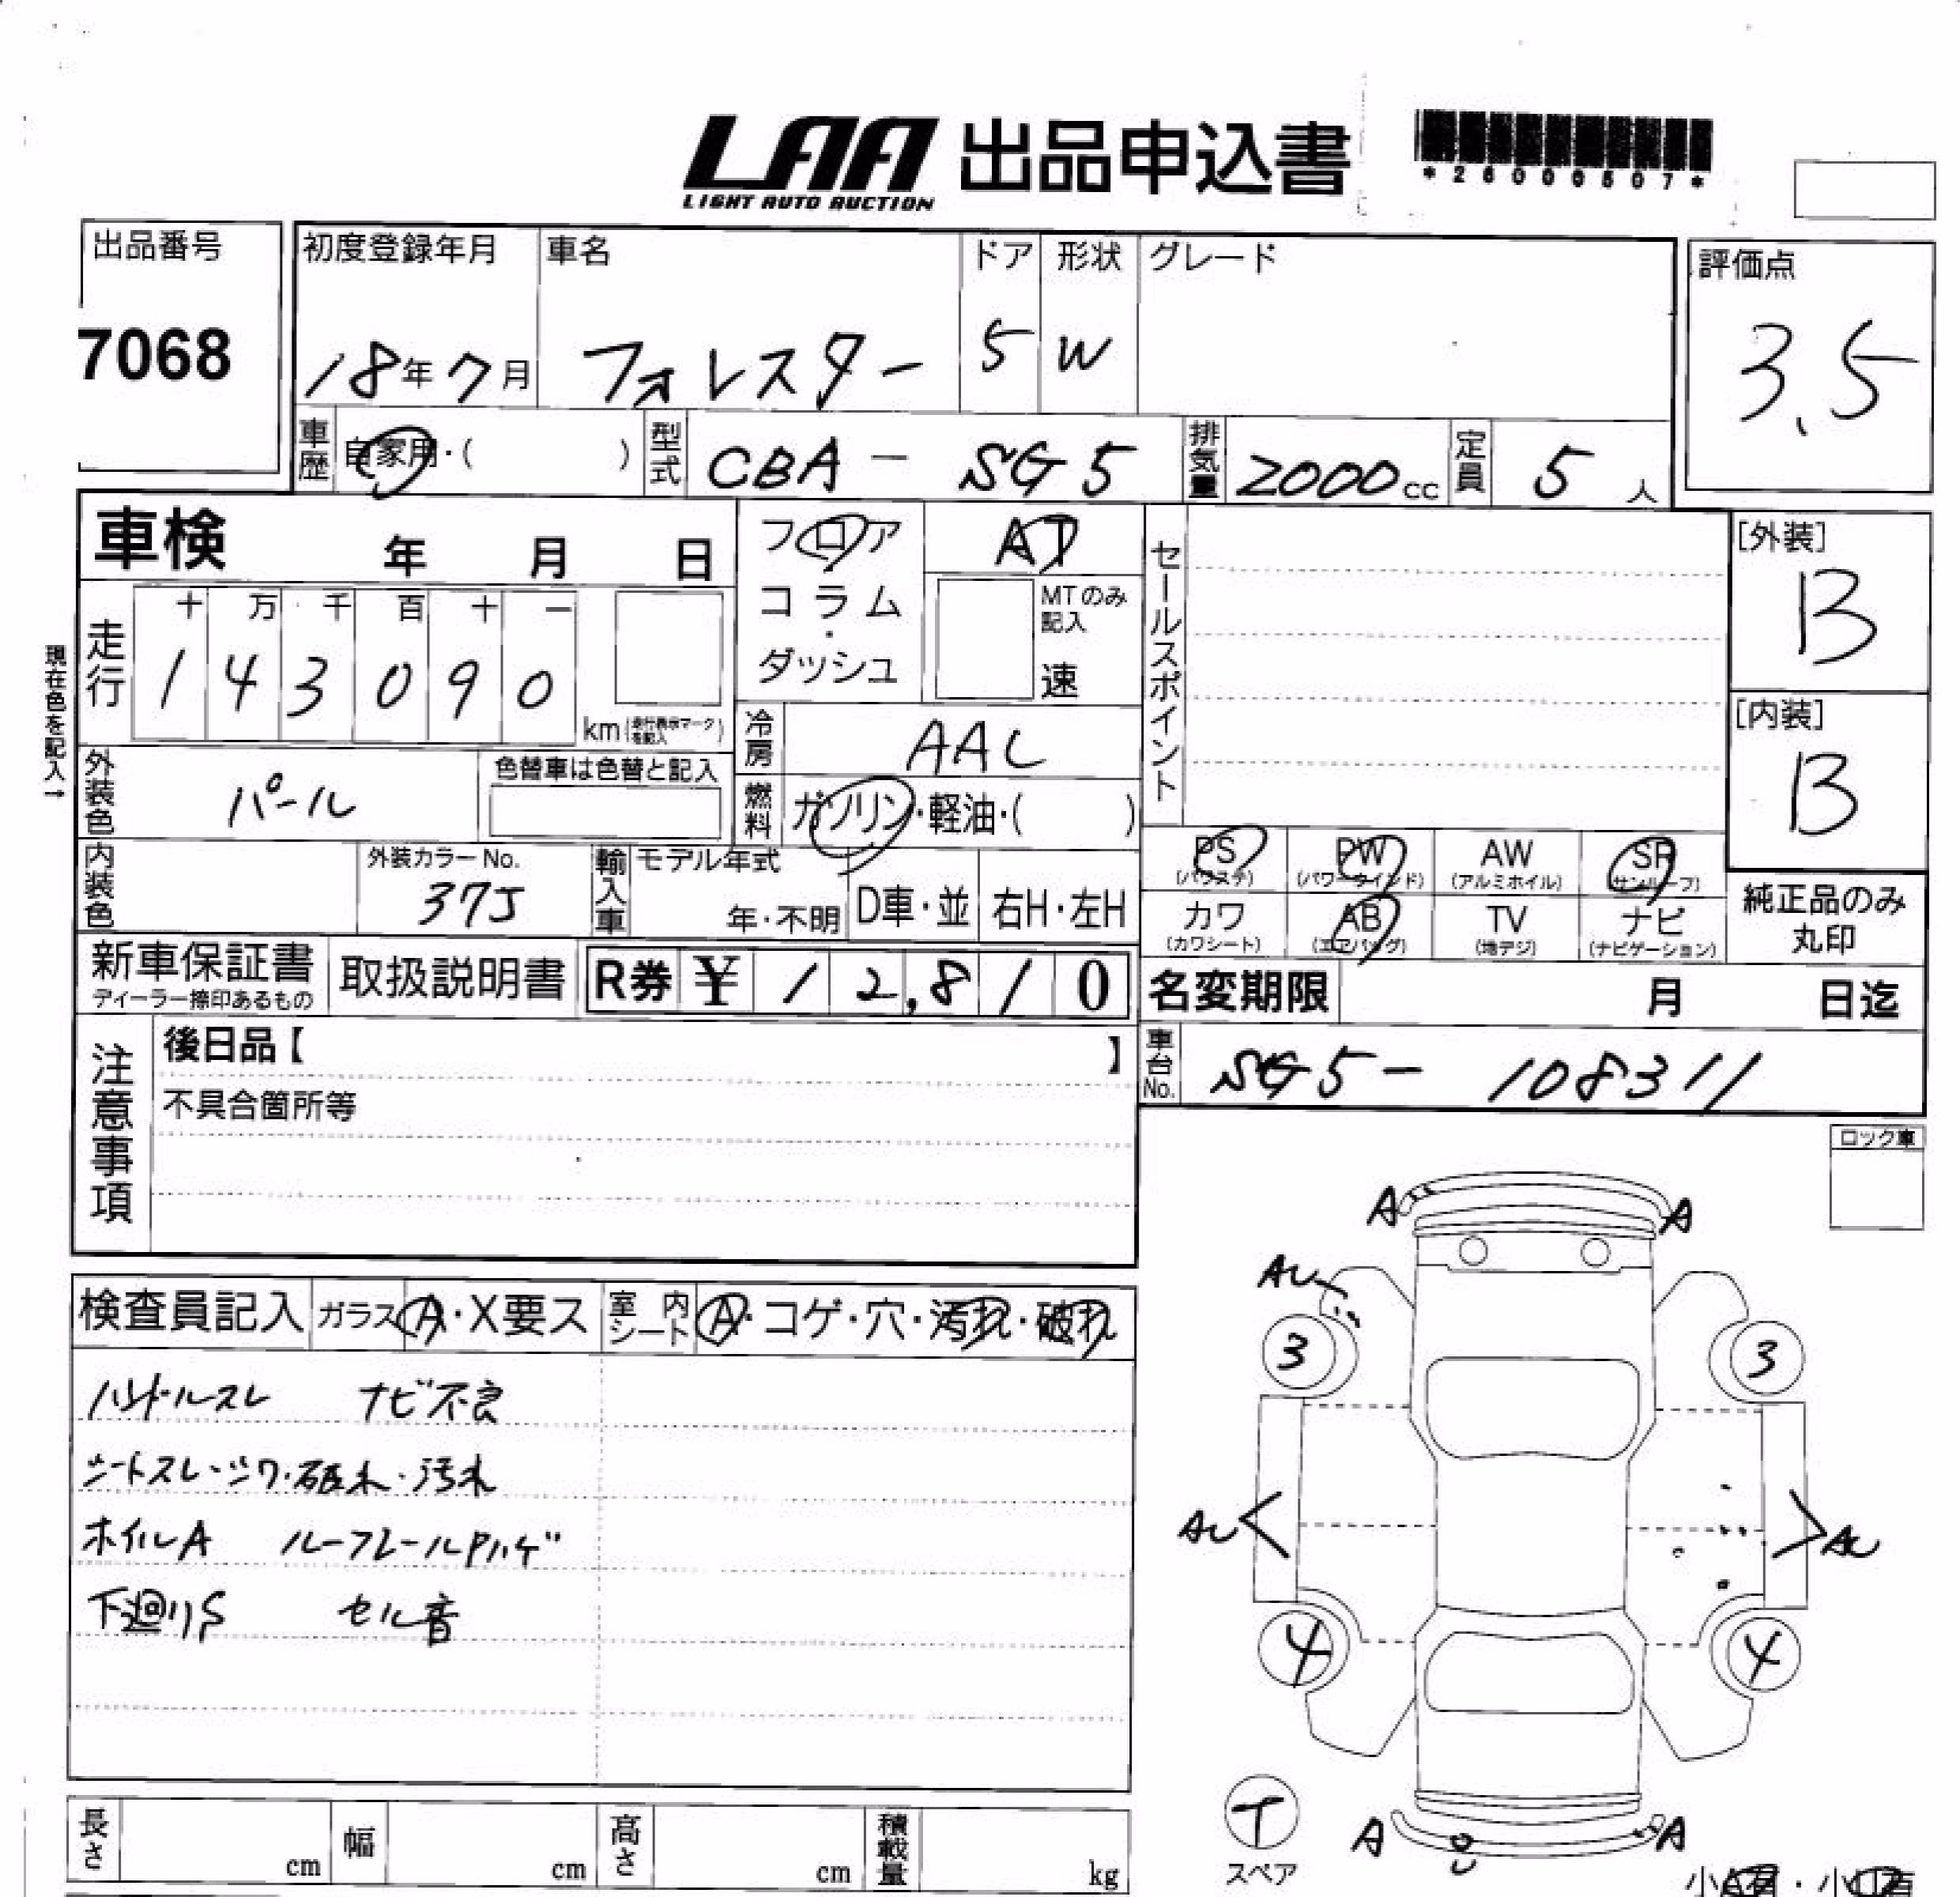 LAA 出品申込書
LIGHT AUTO AUCTION
*26000607*
出品番号
7068
初度登録年月 車名 ドア 形状 グレード 評価点
18年7月 フォレスター 5 W 3.5
車歴 自家用・( ) 型式 CBA - SG5 排気量 2000cc 定員 5人
車検 年 月 日
フロア AT
コラム・ダッシュ
MTのみ記入
速
セールスポイント
[外装]
B
[内装]
B
現在色を記入→
走行 十 万 千 百 十 一
1 4 3 0 9 0
km(走行表示マークを記入)
冷房 AAC
外装色 パール 色替車は色替と記入
燃料 ガソリン・軽油・( )
内装色 外装カラーNo. 37J 輸入車 モデル年式 年・不明 D車・並 右H・左H
PS (パワステ) PW (パワーウインド) AW (アルミホイル) SR (サンルーフ)
カワ (カワシート) AB (エアバッグ) TV (地デジ) ナビ (ナビゲーション)
純正品のみ
丸印
新車保証書 取扱説明書 R券 ¥ 12,810
ディーラー捺印あるもの
名変期限 月 日迄
注意事項
後日品【 】
不具合箇所等
車台No. SG5- 108311
ロック車
検査員記入 ガラス A・X要ス 室内シート A・コゲ・穴・汚れ・破れ
ハンドルスレ ナビ不良
シートスレ・シワ・破れ・汚れ
ホイルA ルーフレールPハゲ
下廻りS セル音
A A
AU
3 3
AU AU
4 4
T
スペア
A A
長さ cm 幅 cm 高さ cm 積載量 kg